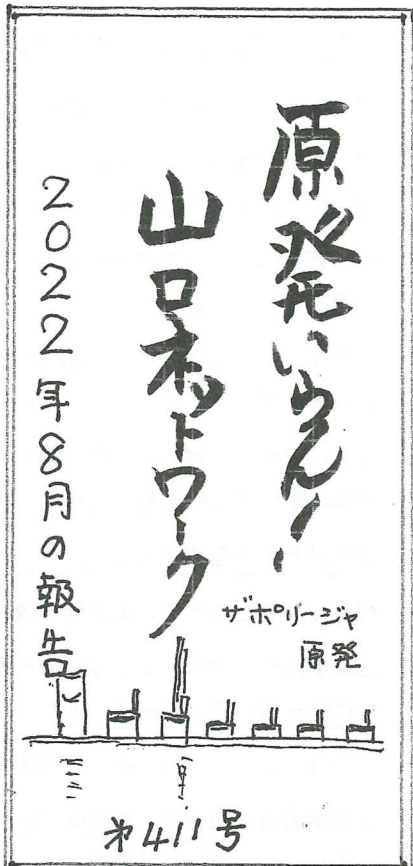 原発いらん！
山口ネットワーク
2022年8月の報告
ザポリージャ
原発
第411号